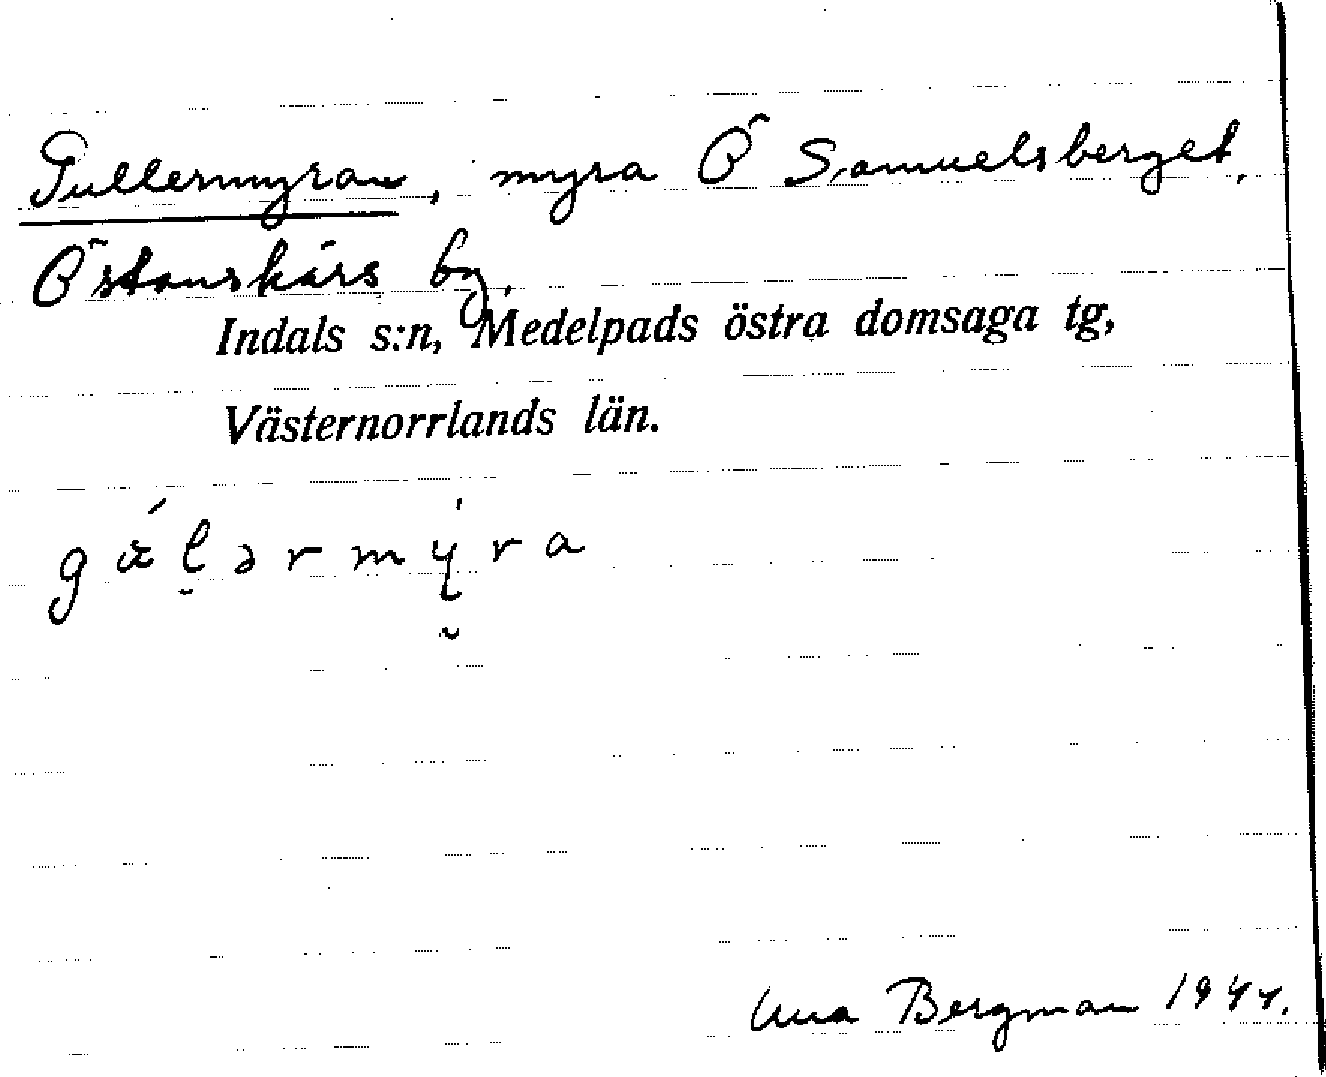 Gullermyran, myra Ö Samuelsberget,
Östanskärs by.
Indals s:n, Medelpads östra domsaga tg,
Västernorrlands län.
Bergman 1944.